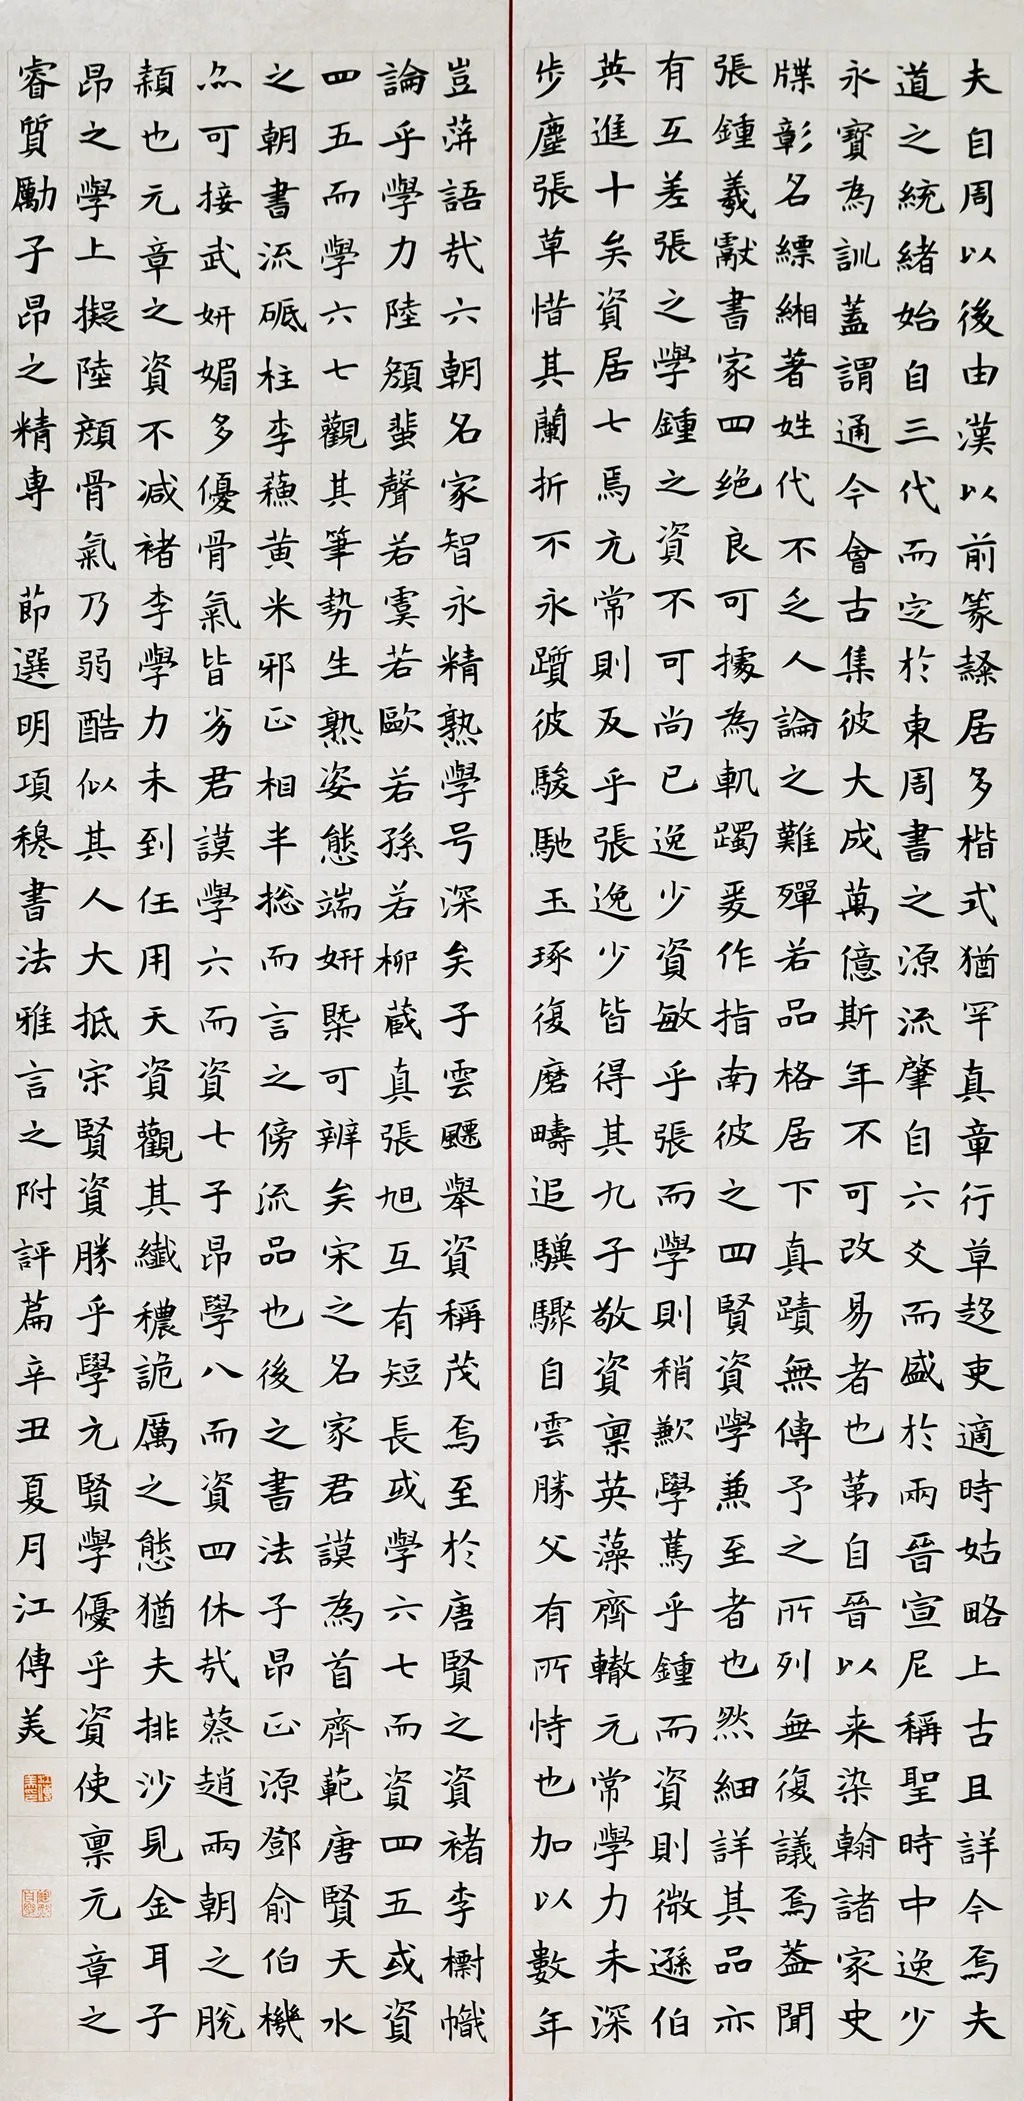 夫自周以後由漢以前篆隸居多楷式猶罕真章行草趍吏適時姑略上古且詳今焉夫
道之統緒始自三代而定於東周書之源流肇自六爻而盛於兩晉宣尼稱聖時中逸少
永寶為訓蓋謂通今會古集彼大成萬億斯年不可改易者也苐自晉以来染翰諸家史
牒彰名縹緗著姓代不乏人論之難殫若品格居下真蹟無傳予之所列無復議焉葢聞
張鍾羲獻書家四绝良可據為軌躅爰作指南彼之四賢資學兼至者也然細詳其品亦
有互差張之學鍾之資不可尚已逸少資敏乎張而學則稍歉學篤乎鍾而資則微遜伯
英進十矣資居七焉元常則反乎張逸少皆得其九子敬資禀英藻齊轍元常學力未深
步塵張草惜其蘭折不永躓彼駿馳玉琢復磨疇追驥驟自雲勝父有所恃也加以數年
豈蓱語㢤六朝名家智永精熟學号深矣子雲飃舉資稱茂焉至於唐賢之資褚李標幟
論乎學力陸顔蜚聲若虞若歐若孫若柳蔵真張旭互有短長或學六七而資四五或資
四五而學六七觀其筆勢生熟姿態端妍槩可辨矣宋之名家君謨為首齊範唐賢天水
之朝書流砥柱李蘓黄米邪正相半捴而言之傍流品也後之書法子昂正源鄧俞伯機
亦可接武妍媚多優骨氣皆劣君謨學六而資七子昂學八而資四休㢤蔡趙兩朝之脫
頴也元章之資不减褚李學力未到任用天資觀其纖穠詭厲之態猶夫排沙見金耳子
昂之學上擬陸顔骨氣乃弱酷似其人大抵宋賢資勝乎學元賢學優乎資使禀元章之
睿質勵子昂之精専 節選明項穆書法雅言之附評篇辛丑夏月江傳美